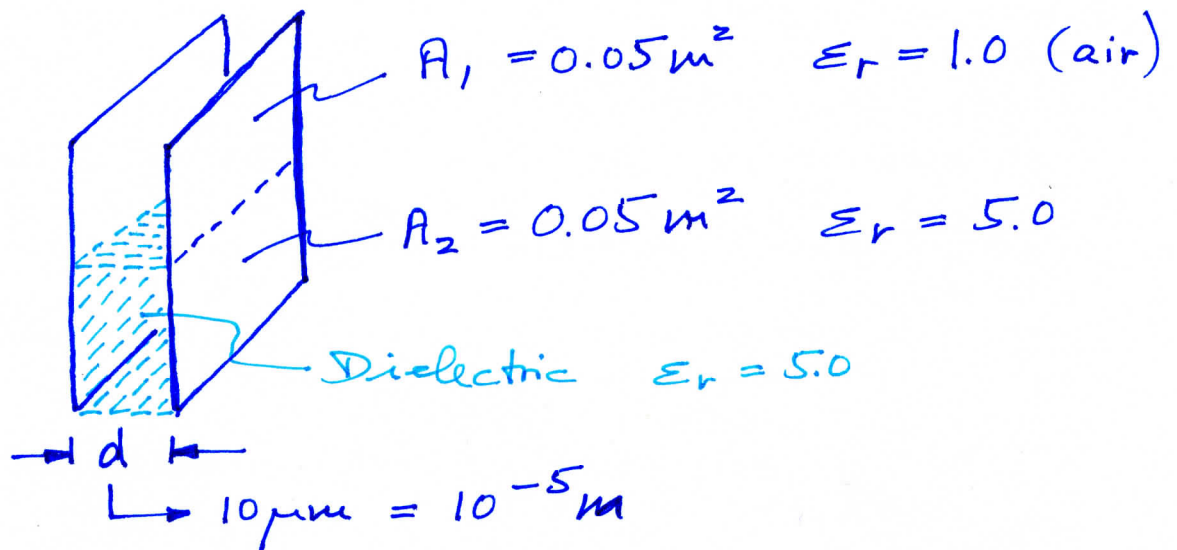 A₁ = 0.05 m² εᵣ = 1.0 (air)
A₂ = 0.05 m² εᵣ = 5.0
Dielectric εᵣ = 5.0
d
10 μm = 10⁻⁵ m